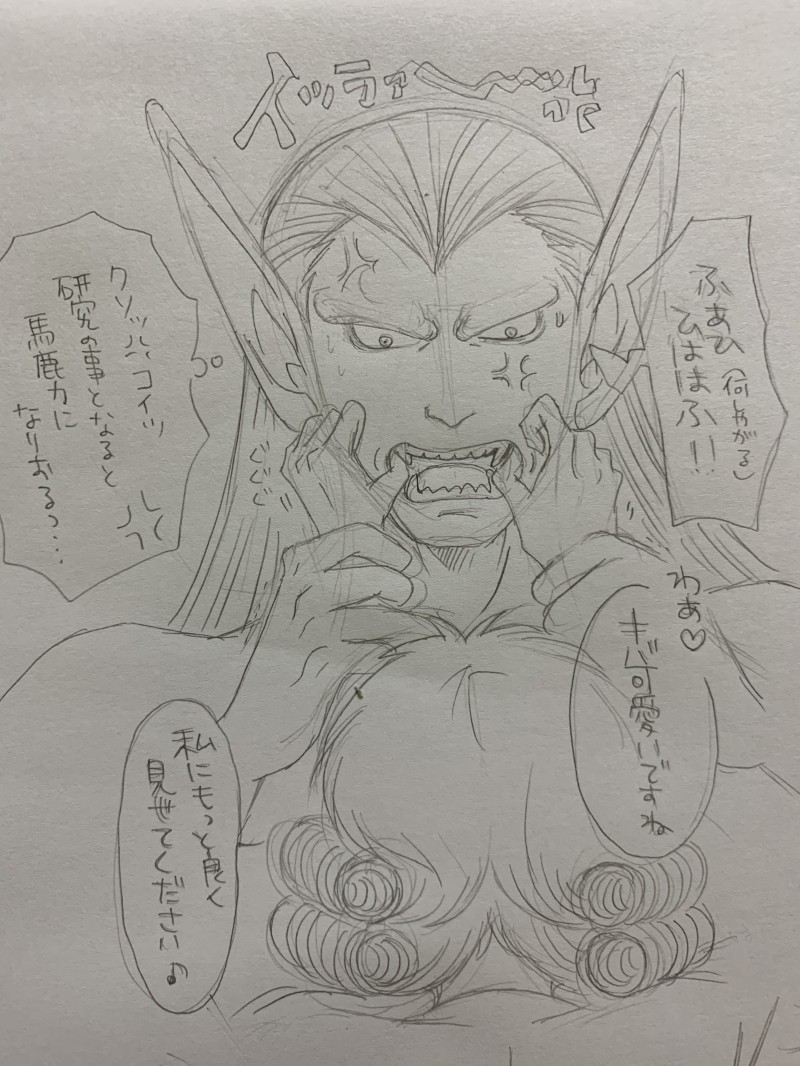 イッラァ〜〜
ふぁひ(何しやがる)
ひははふ!!
クソッ!!コイツ
研究の事となると
馬鹿力に
なりおるっ…
ぐぐぐ
わぁ♡
キバ可愛いですね
私にもっと良く
見せてください♪